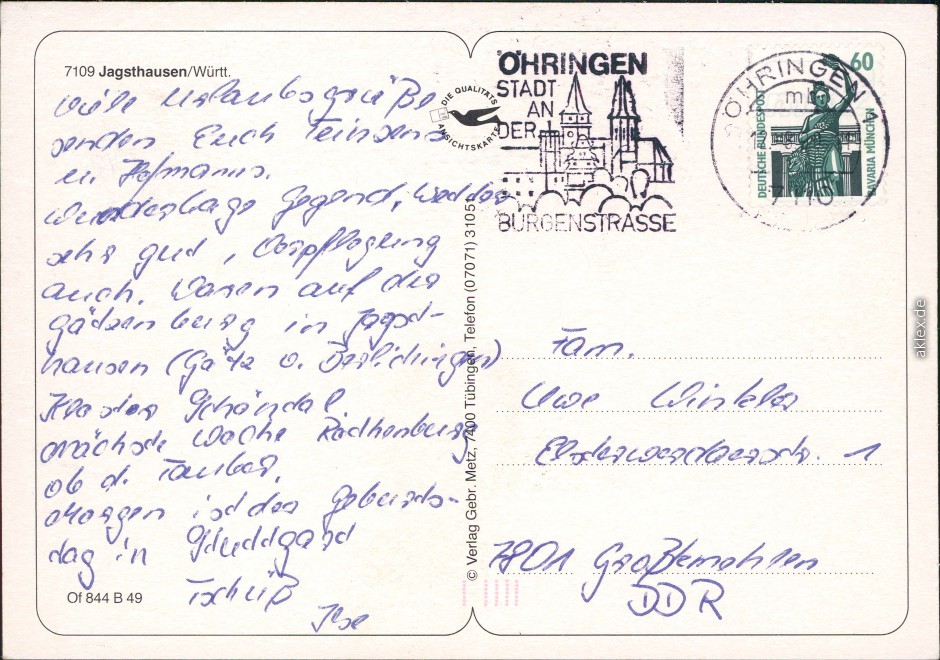 7109 Jagsthausen/Württ.
Viele Urlaubsgrüße
senden Euch
u. Hofmanns.
Wunderbare Gegend, Wetter
sehr gut, Verpflegung
auch. Waren auf der
Götzenburg in Jagst-
hausen (Götz v. Berlichingen)
Kloster Schöntal
nächste Woche Rothenburg
ob d. Tauber.
Morgen ist der Geburts-
tag in Stuttgard
Tschüß
Ilse
Of 844 B 49
DIE QUALITÄTS
ANSICHTSKARTE
© Verlag Gebr. Metz, 7400 Tübingen, Telefon (07071) 31051
ÖHRINGEN
STADT
AN
DER
BURGENSTRASSE
ÖHRINGEN
mb
7110
60
DEUTSCHE BUNDESPOST
BAVARIA MÜNCHEN
Fam.
Uwe Winkler
Elsterwerdaerstr. 1
7801 Großkmehlen
DDR
aklex.de